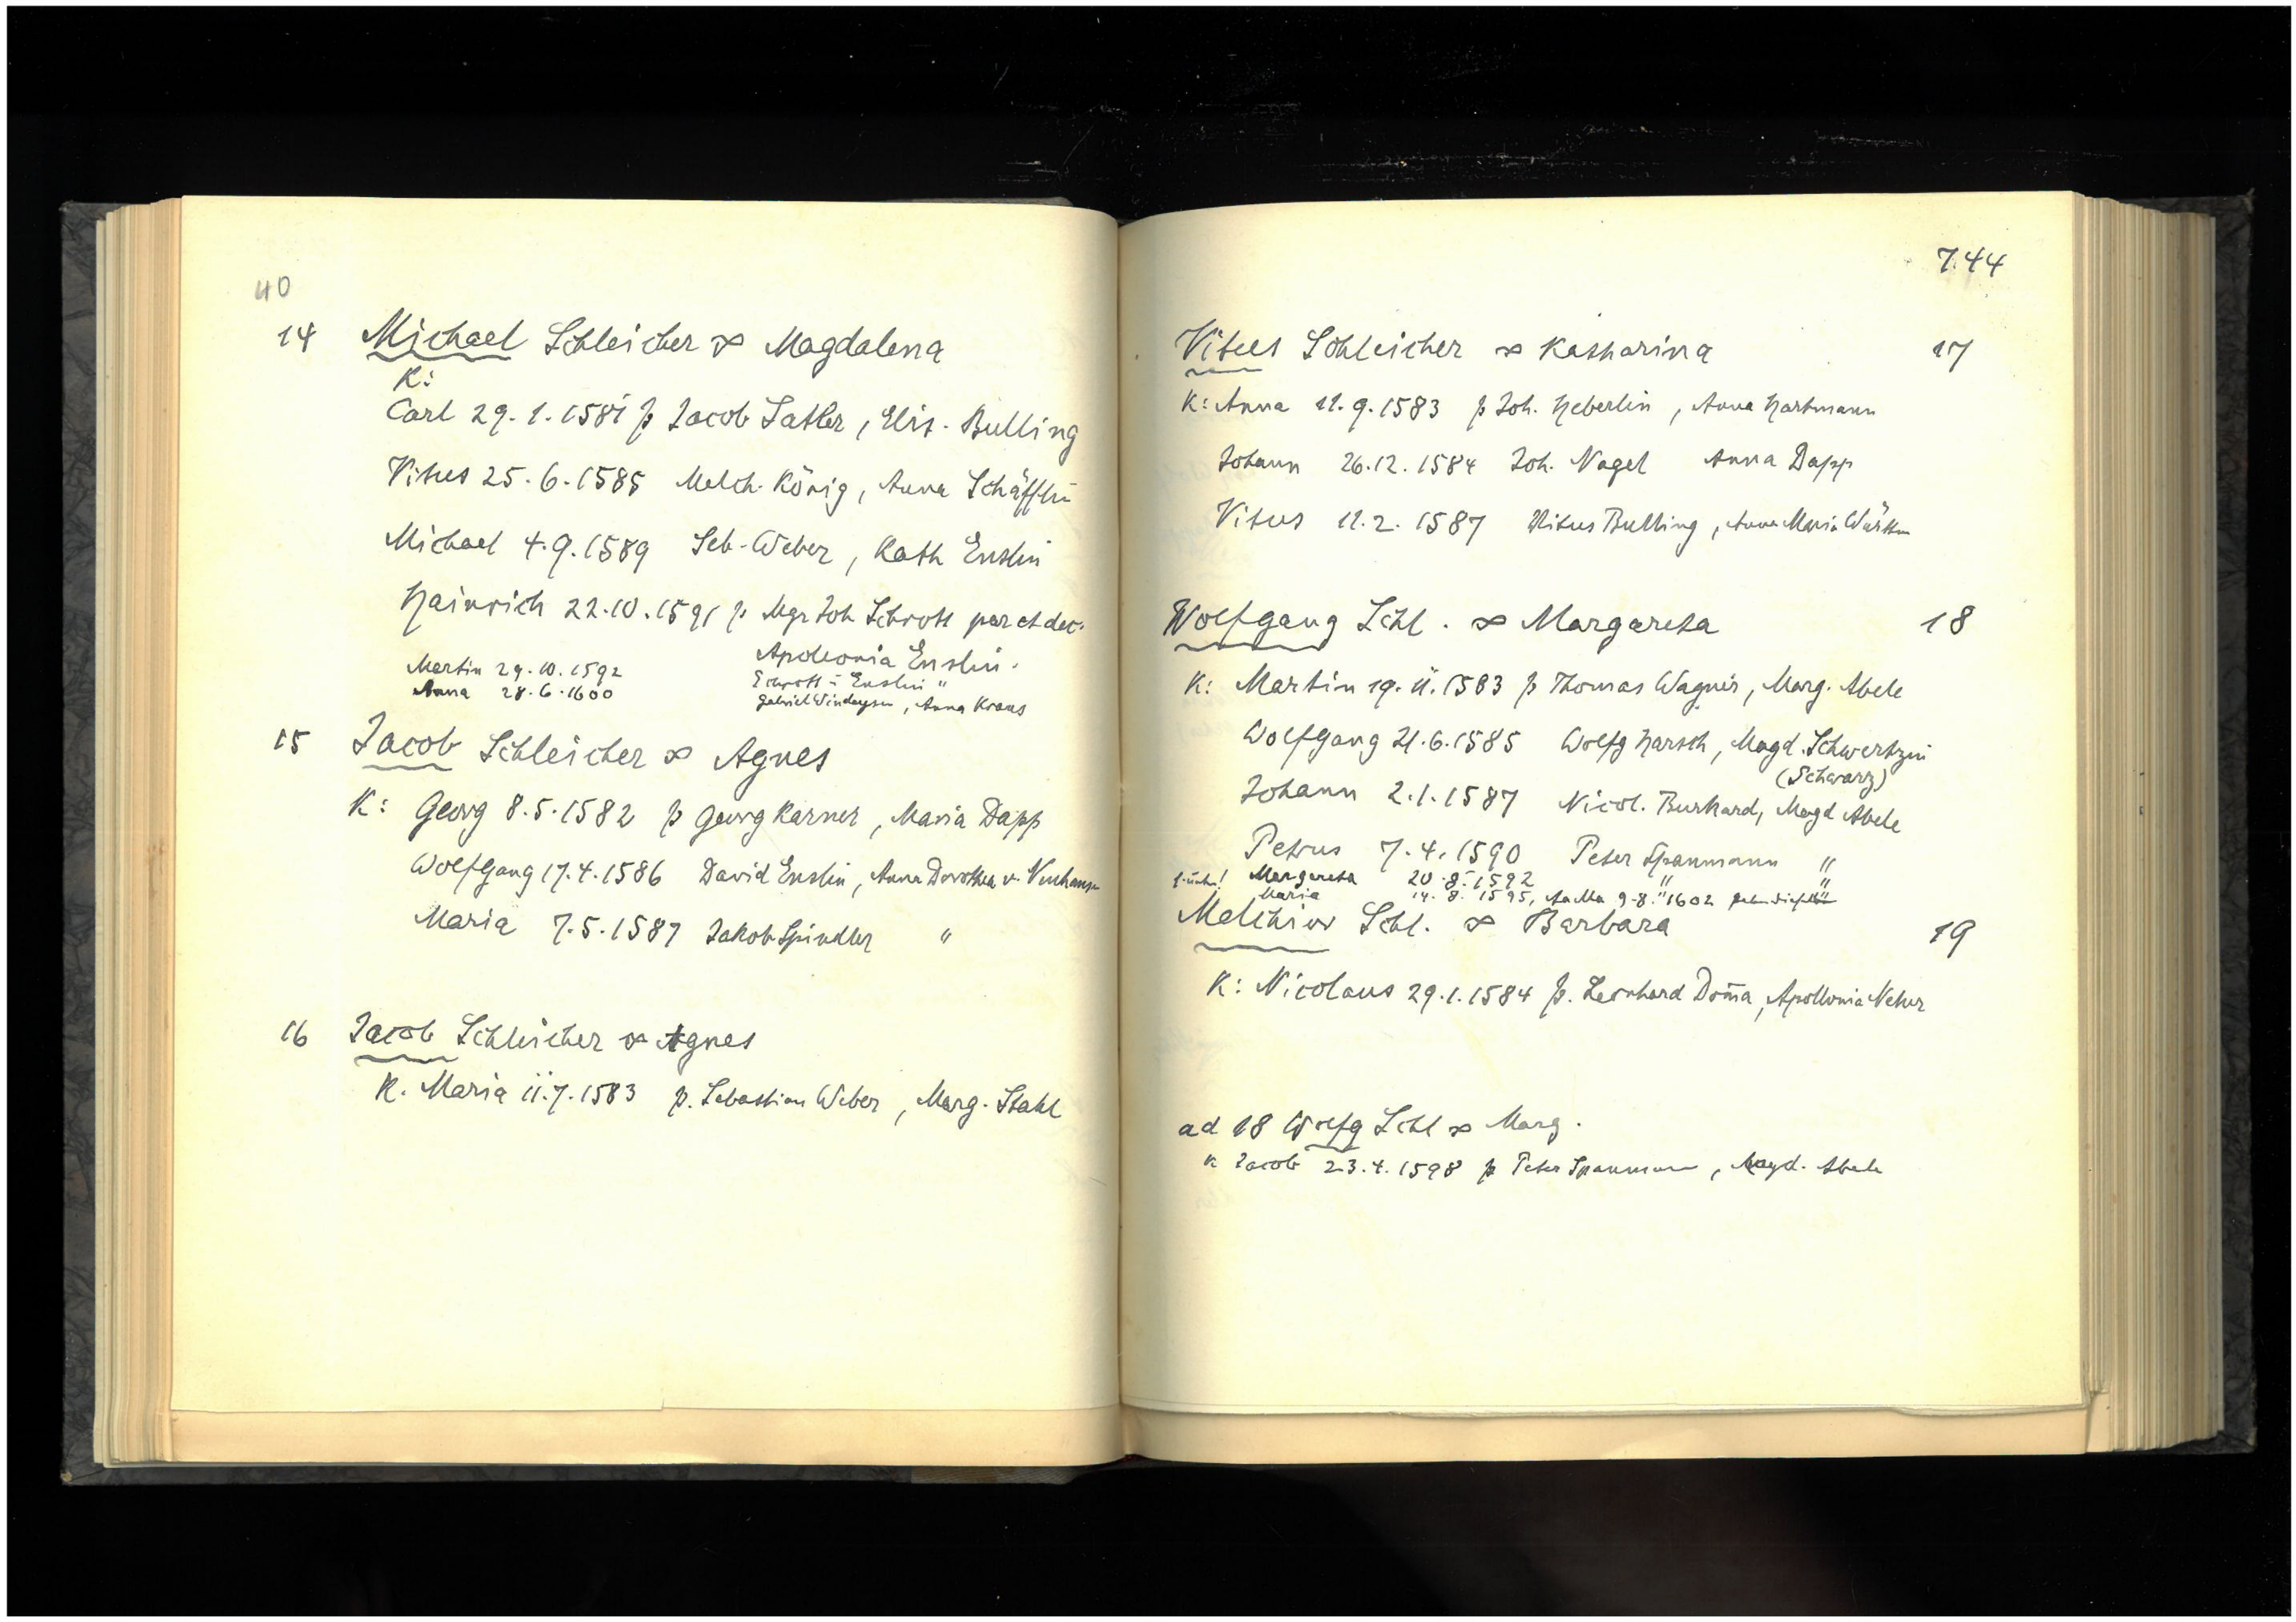 40
14 Michael Schleicher ∞ Magdalena
K:
Carl 29.1.1581 p Jacob Satler, Elis. Bulling
Vitus 25.6.1585 Melch. König, Anna Schäfflin
Michael 4.9.1589 Seb. Weber, Kath Enslin
Hainrich 22.10.1591 p Mgr Joh Schrott par et dec.
Apolonia Enslin.
Martin 29.10.1592 Schrott u Enslin "
Anna 28.6.1600 Gabriel, Anna Kraus
15 Jacob Schleicher ∞ Agnes
K: Georg 8.5.1582 p Georg Karner, Maria Dapp
Wolfgang 17.4.1586 David Enslin, Anna Dorothea v. Neuhausen
Maria 7.5.1587 Jakob Spindler "
16 Jacob Schleicher ∞ Agnes
K. Maria 11.7.1583 p. Sebastian Weber, Marg. Stahl
744
Vitus Schleicher ∞ Katharina 17
K: Anna 11.9.1583 p Joh. Heberlin, Anna Hartmann
Johann 26.12.1584 Joh. Nagel Anna Dapp
Vitus 11.2.1587 Vitus Bulling, Anna Maria
Wolfgang Schl. ∞ Margareta 18
K: Martin 19.11.1583 p Thomas Wagner, Marg. Abele
Wolfgang 21.6.1585 Wolfg Harsch, Magd. Schwertzin
(Schwarz)
Johann 2.1.1587 Nicol. Burkard, Magd Abele
Petrus 7.4.1590 Peter Spanmann "
s. unten! Margareta 20.8.1592 " "
Maria 14.8.1595, 9.8.1602
Melchior Schl. ∞ Barbara 19
K: Nicolaus 29.1.1584 p. Leonhard Dom̄a, Apollonia
ad 18 Wolfg Schl ∞ Marg.
K Jacob 23.4.1598 p Peter Spanmann, Magd. Abele